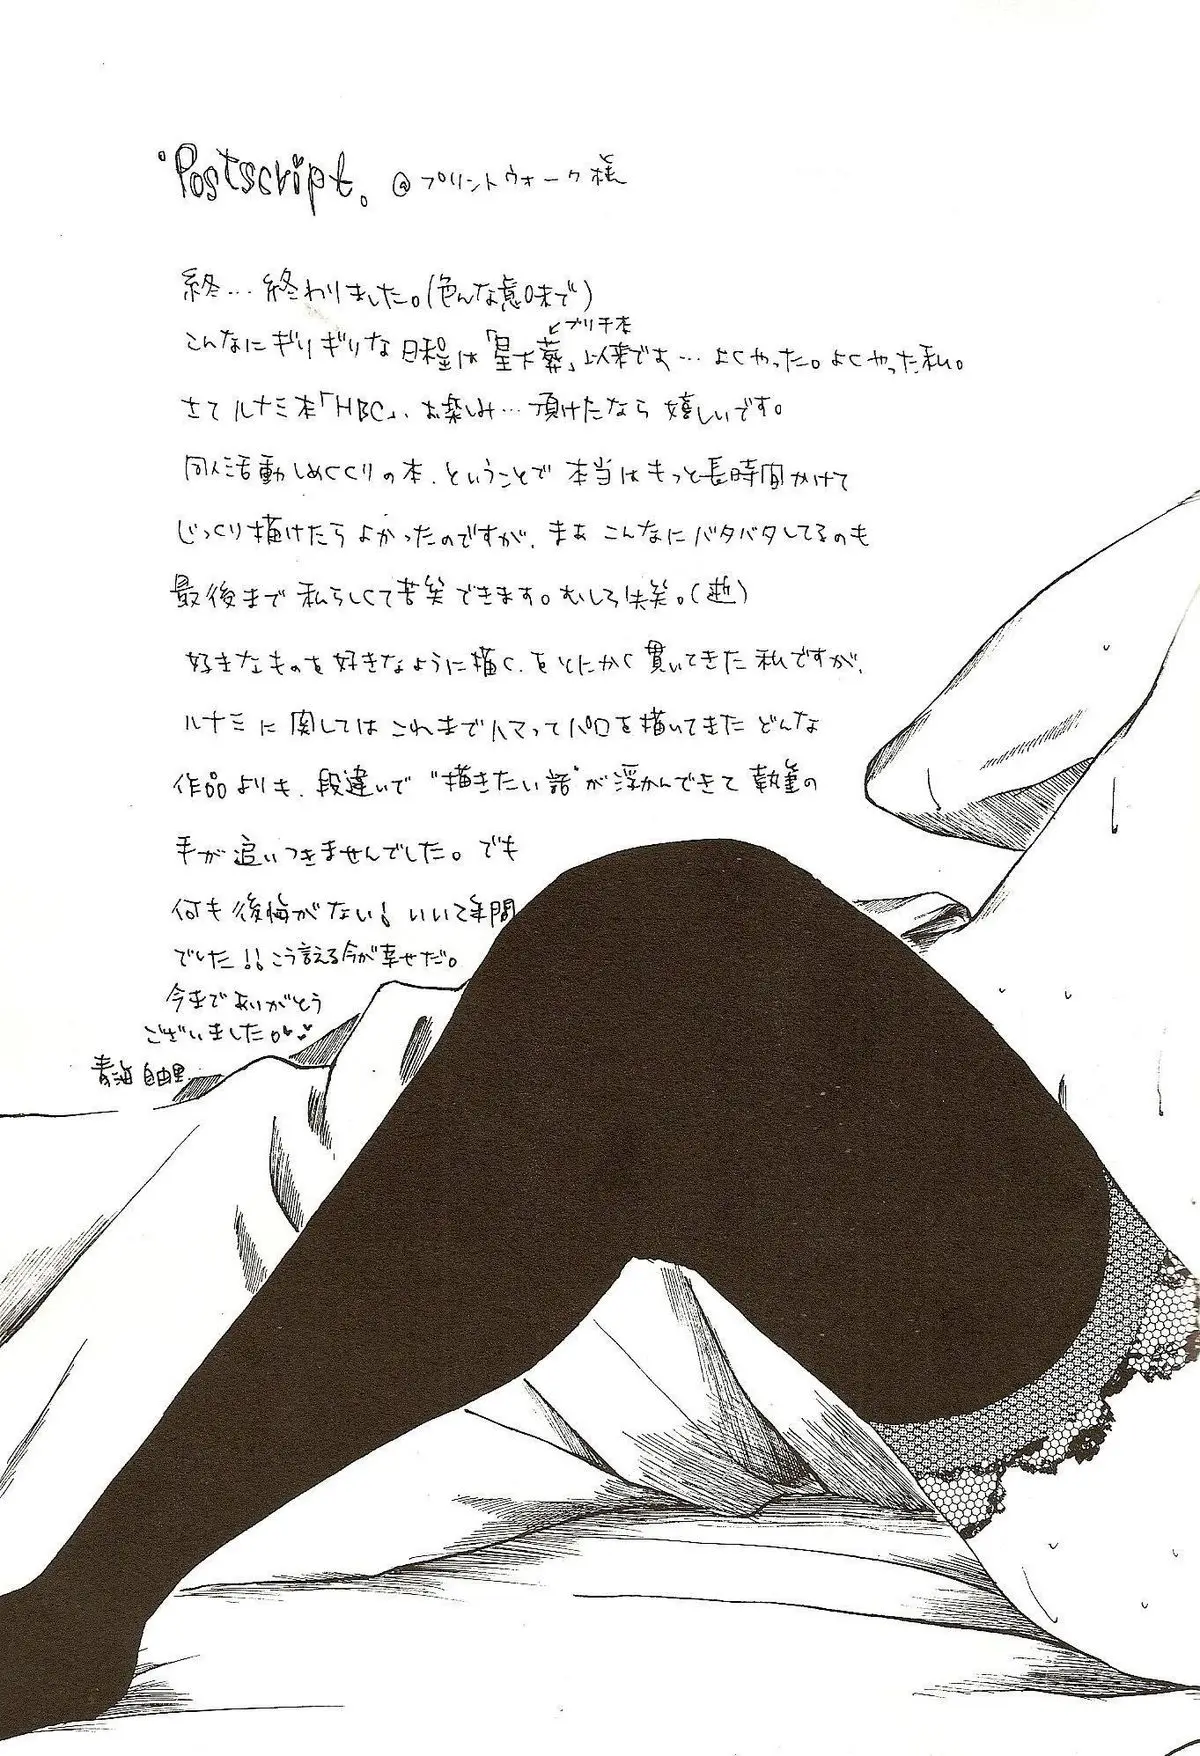 Postscript. @プリントウォーク様
終…終わりました。(色んな意味で)
プリチ本
こんなにギリギリな日程は「星大葬」以来です…よくやった。よくやった私。
さてルナミ本「HBC」、お楽しみ…頂けたなら嬉しいです。
同人活動しめくくりの本、ということで本当はもっと長時間かけて
じっくり描けたらよかったのですが、まぁこんなにバタバタしてるのも
最後まで私らしくて苦笑できます。むしろ失笑。
好きなものを好きなように描く、をとにかく貫いてきた私ですが、
ルナミに関してはこれまでハマってパロを描いてきたどんな
作品よりも、段違いで"描きたい話"が浮かんできて執筆の
手が追いつきませんでした。でも
何も後悔がない!いい年間
でした!!こう言える今が幸せだ。
今までありがとう
ございました。♥♥
青海自由里